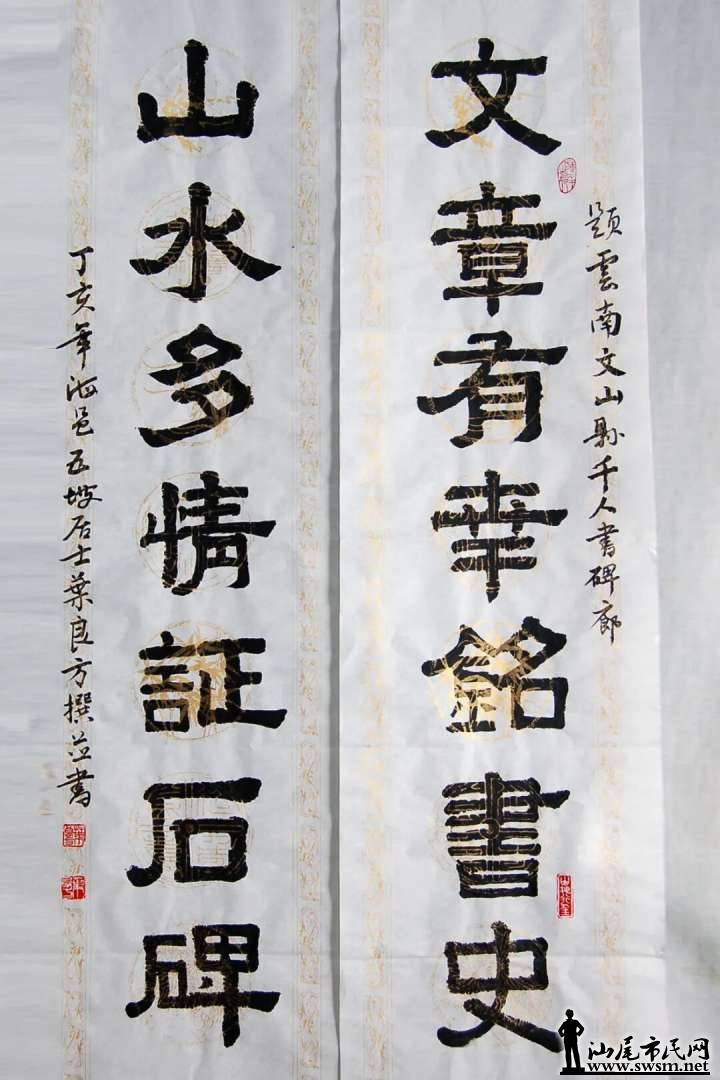 題雲南文山縣千人書碑廊
文章有幸銘書史
山水多情証石碑
丁亥年海邑五坡居士葉良方撰並書
汕尾市民网
www.swsm.net